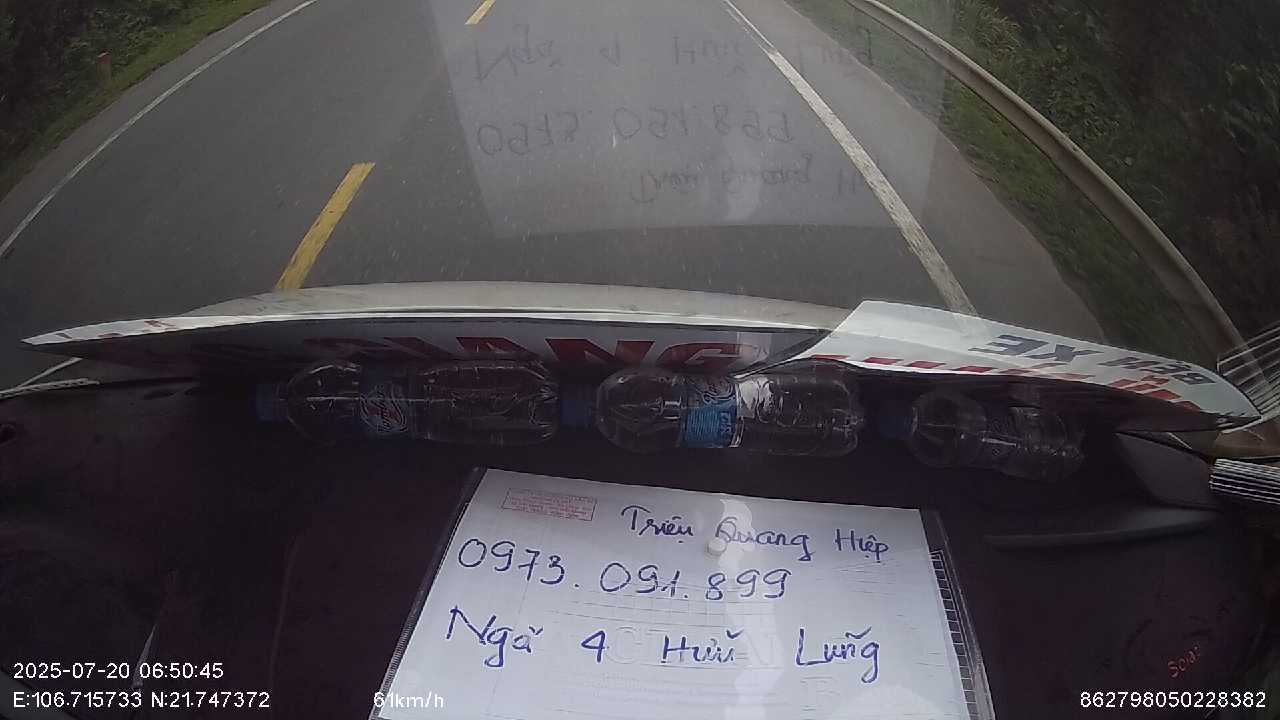 GIANG
BẾN XE
Triệu Quang Hiệp
0973.091.899
Ngã 4 Hữu Lũng
2025-07-20 06:50:45
E:106.715733 N:21.747372
61km/h
862798050228382